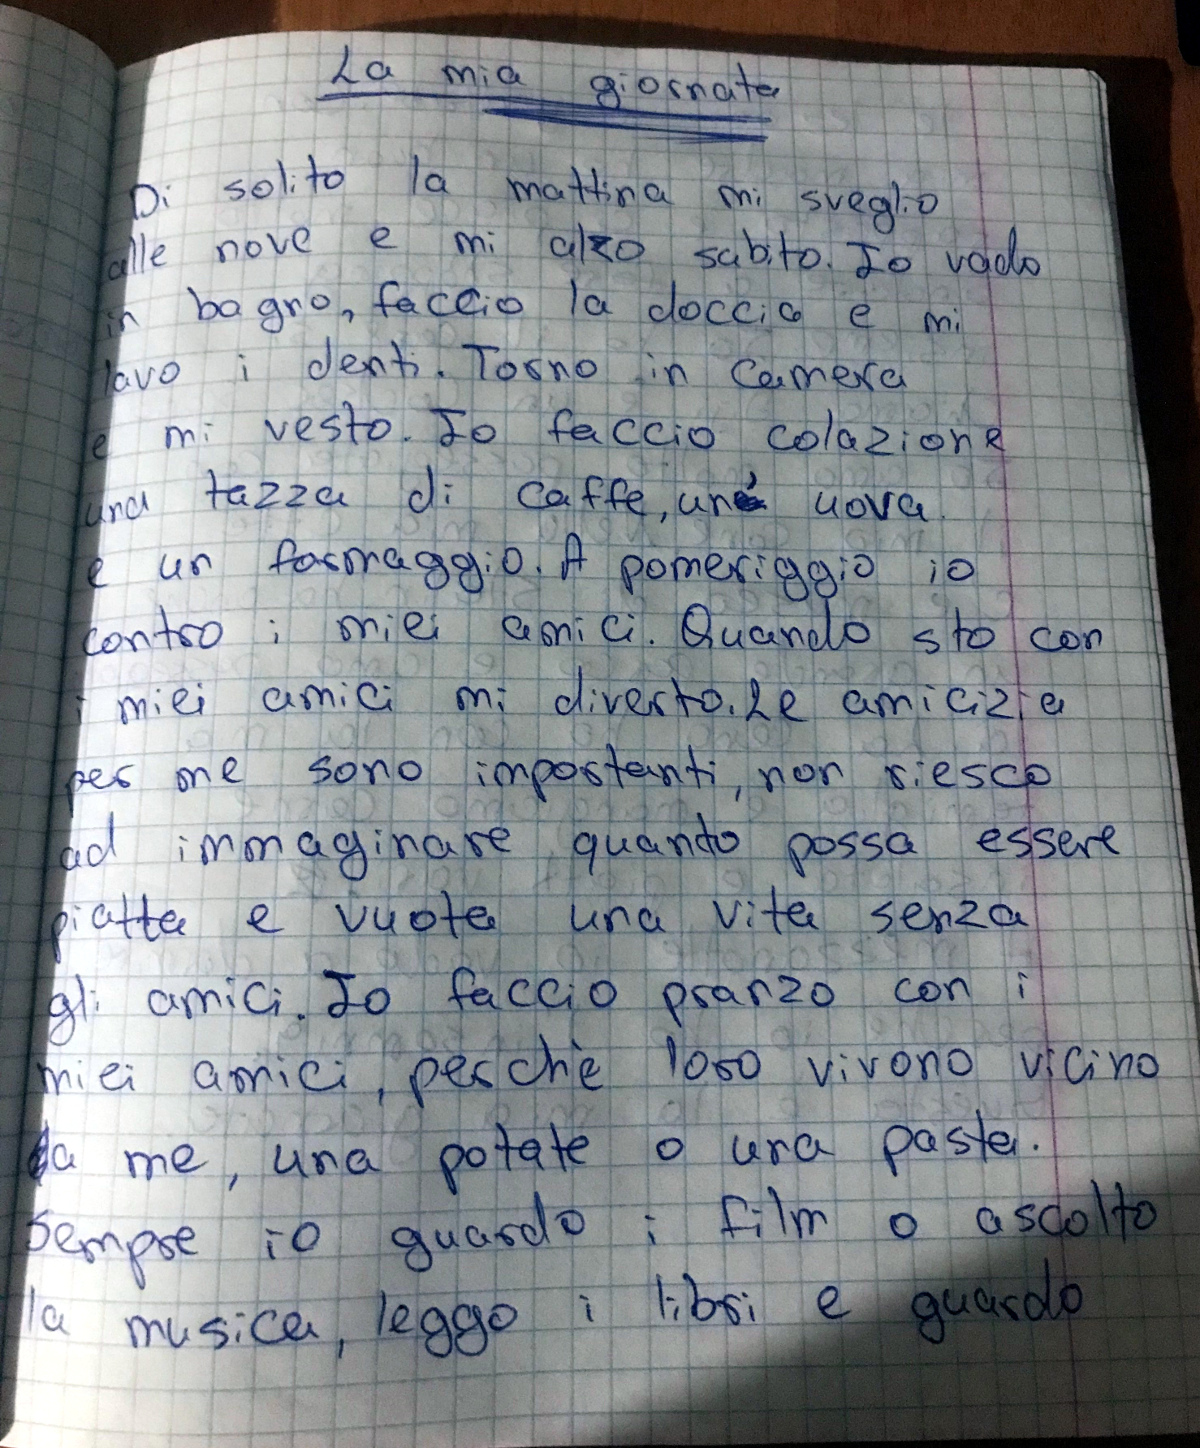 La mia giornata
Di solito la mattina mi sveglio
alle nove e mi alzo subito. Io vado
in bagno, faccio la doccia e mi
lavo i denti. Torno in camera
e mi vesto. Io faccio colazione
una tazza di caffe, uova
e un formaggio. A pomeriggio io
contro i miei amici. Quando sto con
i miei amici mi diverto. Le amicizia
per me sono importanti, non riesco
ad immaginare quanto possa essere
piatta e vuota una vita senza
gli amici. Io faccio pranzo con i
miei amici, perchè loro vivono vicino
da me, una potate o una pasta.
Sempre io guardo i film o ascolto
la musica, leggo i libri e guardo